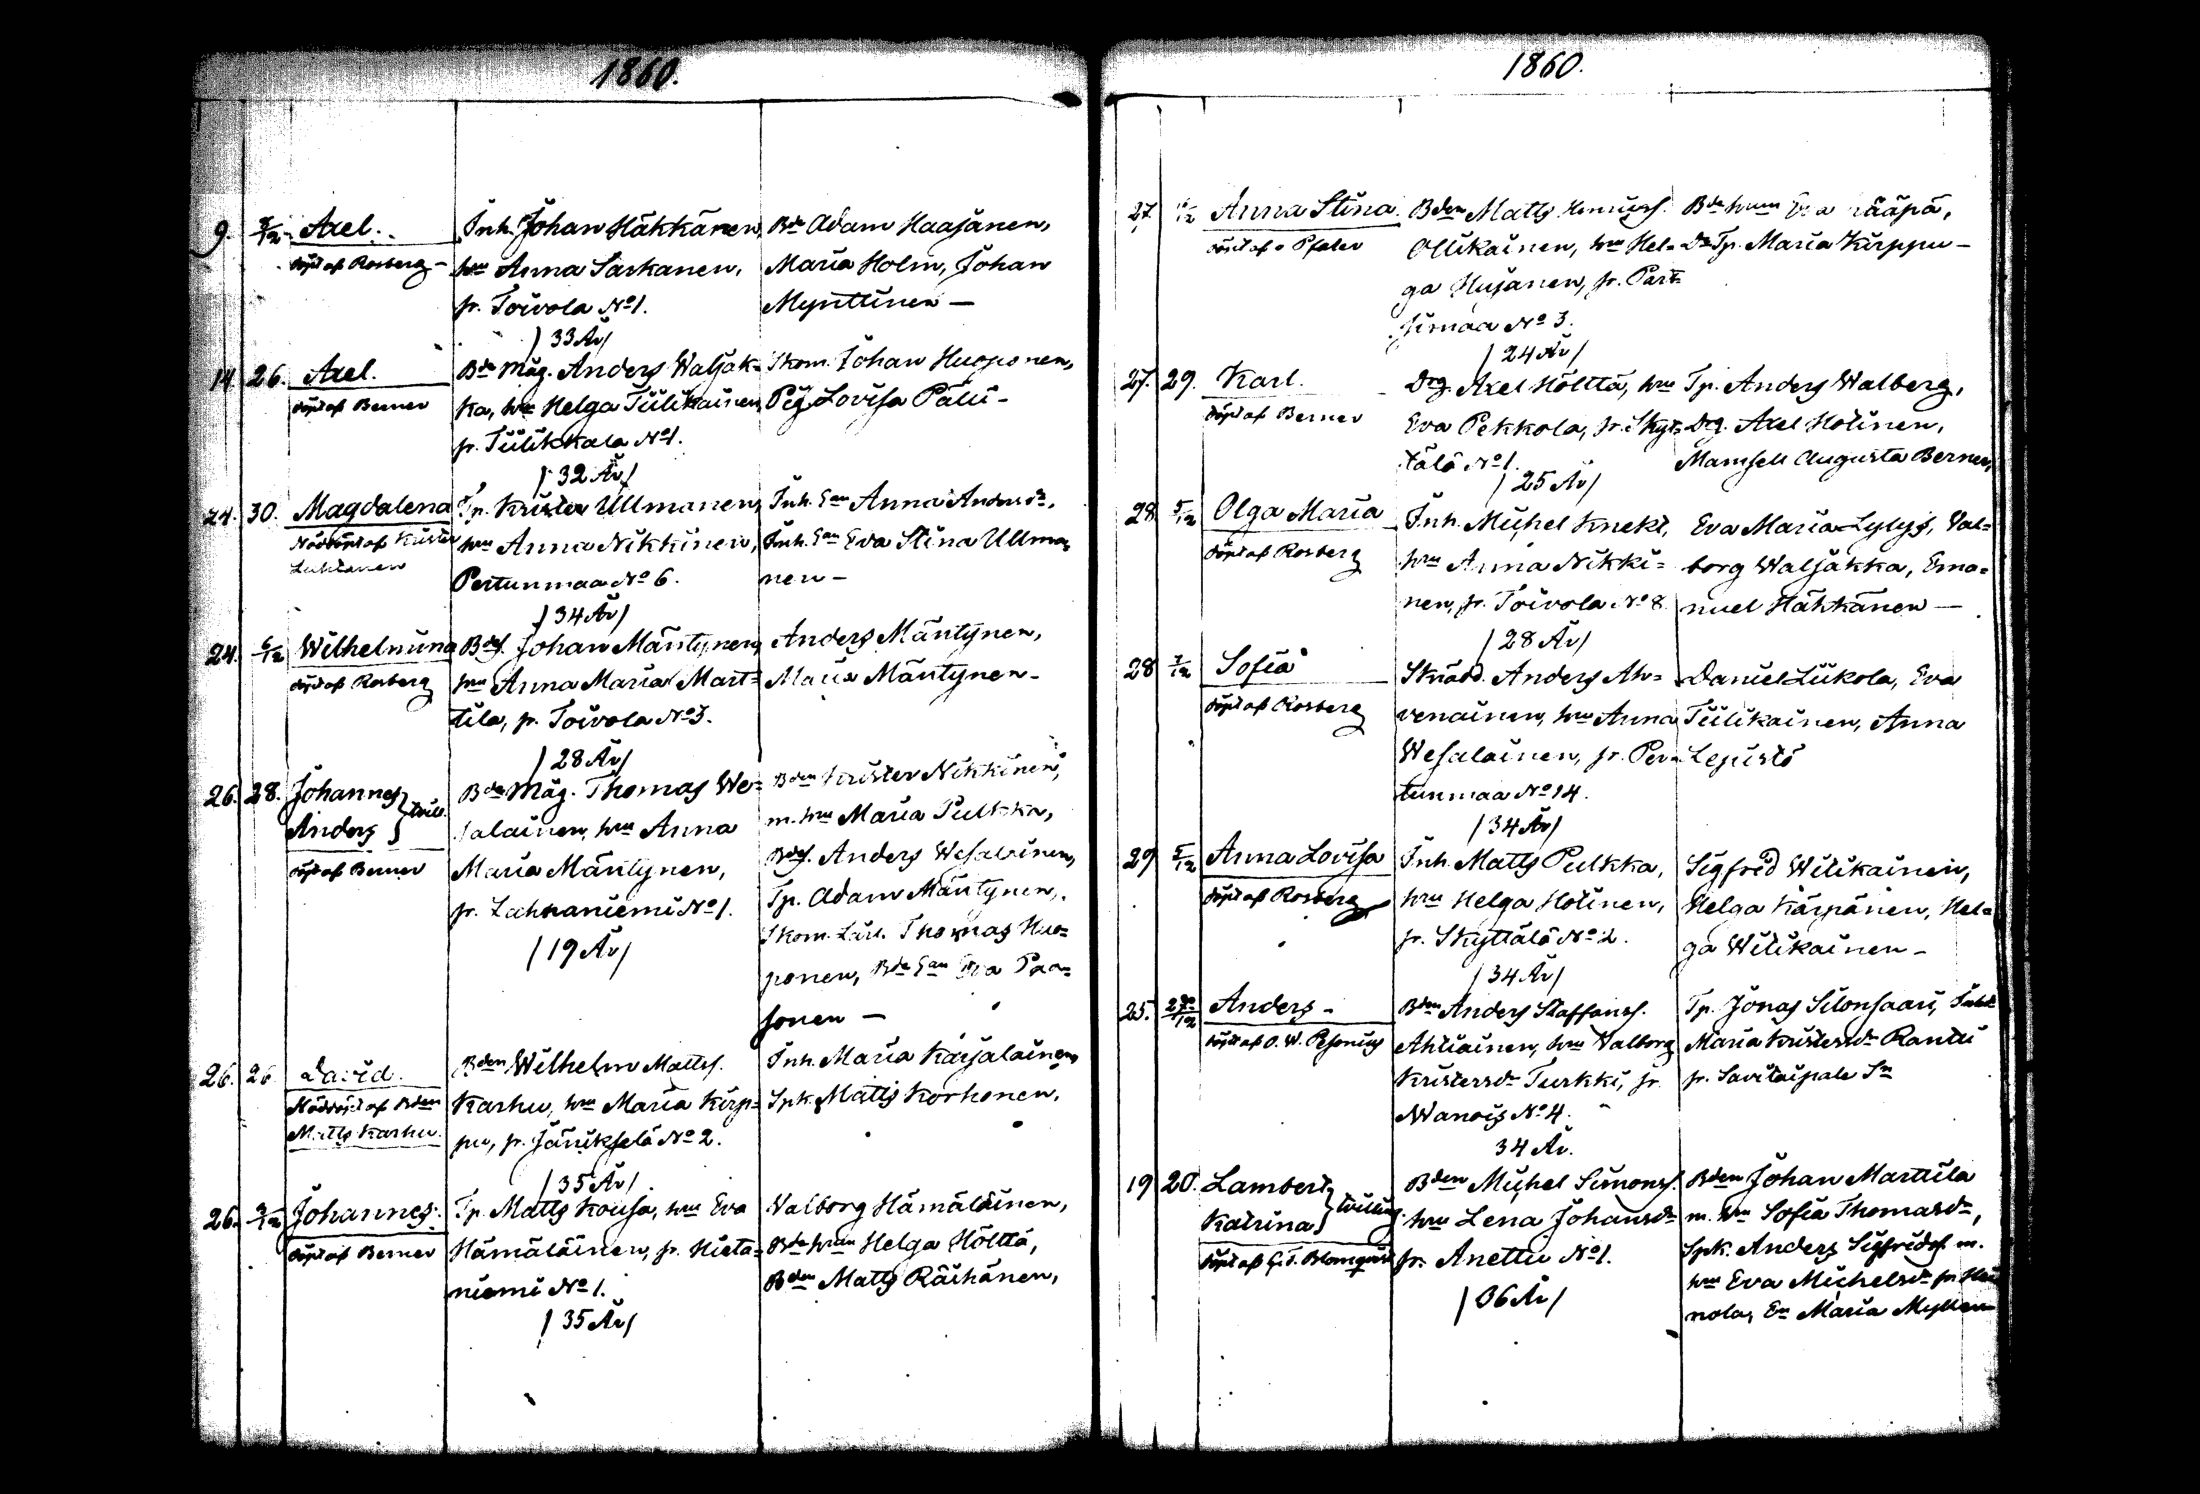 1860.
9. 2/12 Axel.
döpt af Rosberg -
Inh. Johan Häkkänen,
hm Anna Sarkanen,
fr. Toivola No 1.
/ 33 År /
Bde Adam Haajanen,
Maria Holm, Johan
Mynttinen -
14. 26. Axel.
döpt af Berner
Bde Måg. Anders Waljak-
ka, hm Helga Tiilikainen,
fr. Tiilikkala No 1.
/ 32 År /
Skom. Johan Huoponen,
Pig. Lovisa Pali -
24. 30. Magdalena
Nöddöpt af Krister
Luhtanen
Tp. Krister Ullmanen,
hm Anna Nikkinen,
Pertunmaa No 6.
/ 34 År /
Inh. Enn Anna Andersdr.
Inh. Enn Eva Stina Ullma-
nen -
24. 6/12 Wilhelmina
döpt af Rosberg
Bdes. Johan Mäntynen,
hm Anna Maria Mart-
tila, fr. Toivola No 3.
/ 28 År /
Anders Mäntynen,
Maria Mäntynen -
26. 28. Johannes
Anders } tvill.
döpt af Berner
Bde Måg. Thomas We-
salainen, hm Anna
Maria Mäntynen,
fr. Lahnaniemi No 1.
/ 19 År /
Bden Krister Nikkinen,
m. hm Maria Pulkka,
Bdes. Anders Wesalainen,
Tp. Adam Mäntynen,
Skom. Lärl. Thomas Huo-
ponen, Bde Enn Eva Paa-
sonen -
26. 26 David.
Nöddöpt af Bden
Matts Karhu.
Bden Wilhelm Mattss.
Karhu, hm Maria Kirp-
pu, fr. Jänikselä No 2.
/ 35 År /
Inh. Maria Karjalainen,
Spk. Matts Korhonen.
26. 3/12 Johannes.
döpt af Berner
Tp. Matts Kousa, hm Eva
Hämäläinen, fr. Hieta-
niemi No 1.
/ 35 År /
Valborg Hämäläinen,
Bde hrnn Helga Hölttä,
Bden Matts Räihänen,
1860.
27. Anna Stina.
döpt af v Pfaler
Bden Matts
Ollikainen, hm Hel-
ga Husanen, fr. Part-
simaa No 3.
/ 24 År /
Bde hrnn Eva Rääpä,
Dr Tp. Maria Kirppu -
27. 29. Karl.
döpt af Berner
Drg. Axel Hölttä, hm
Eva Pekkola, fr. Skyt-
tälä No 1.
/ 25 År /
Tp. Anders Walberg,
Drg. Axel Hotinen,
Mamsell Augusta Berner,
28 5/12 Olga Maria
döpt af Rosberg
Inh. Michel Knekt,
hm Anna Nikki-
nen, fr. Toivola No 8.
/ 28 År /
Eva Maria Lylys, Val-
borg Waljakka, Ema-
nuel Häkkänen -
28 7/12 Sofia
döpt af Rosberg
Skrädd. Anders Ah-
venainen, hm Anna
Wesalainen, fr. Per-
tunmaa No 14.
/ 34 År /
Daniel Liikola, Eva
Tiilikainen, Anna
Lepistö
29 5/12 Anna Lovisa
döpt af Rosberg
Inh. Matts Pulkka,
hm Helga Hotinen,
fr. Skyttälä No 2.
/ 34 År /
Sigfrid Wilikainen,
Helga Kärpänen, Hel-
ga Wilikainen -
25. Anders -
döpt af O. W. Pesonius
Bden Anders Staffanss.
Ahtiainen, hm Valborg
Kristersdr Turkki, fr.
Wanois No 4.
34 År.
Tp. Jonas Silonsaari,
Maria Kristersdr Rantti
fr. Savitaipale Sn
19 20. Lambert
Katrina } tvilling.
döpt af G. T. Blomqvist
Bden Michel Simonss.
hm Lena Johansdr
fr. Anettu No 1.
/ 36 År /
Bden Johan Marttila
m. hm Sofia Thomasdr,
Spk. Anders Sigfridss. m.
hm Eva Michelsdr fr. Hei-
nola, En Maria Myllen